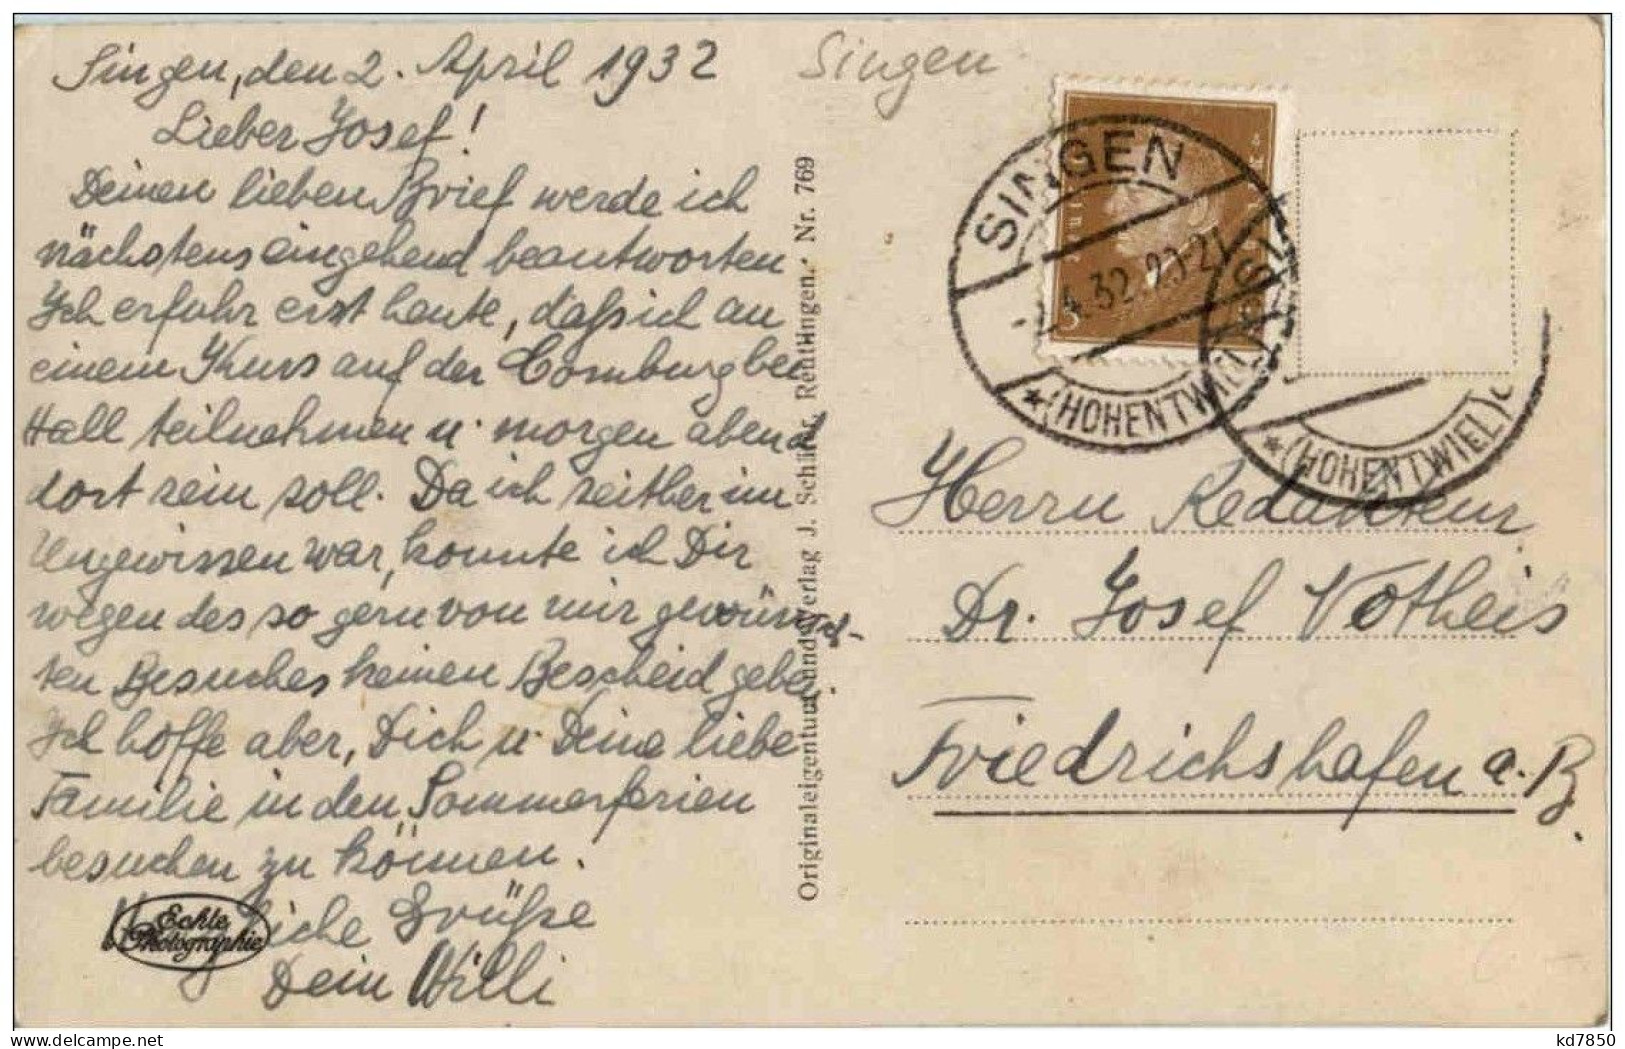 Singen, den 2. April 1932
Lieber Josef!
Deinen lieben Brief werde ich
nächstens eingehend beantworten
Ich erfuhr erst heute, daß ich an
einem Kurs auf der Comburg bei
Hall teilnehmen u. morgen abend
dort sein soll. Da ich seither im
Ungewissen war, konnte ich Dir
wegen des so gern von mir gewünsch-
ten Besuches keinen Bescheid geben.
Ich hoffe aber, Dich u. Deine liebe
Familie in den Sommerferien
besuchen zu können.
Herzliche Grüße
Dein Willi
Echte
Photographie
Originaleigentum und Verlag J. Schlier, Reutlingen. Nr. 769
Singen
SINGEN
-2.4.32. 20-21
★(HOHENTWIEL)
★(HOHENTWIEL)
3
Herrn Redakteur
Dr. Josef Notheis
Friedrichshafen a. B.
kd7850